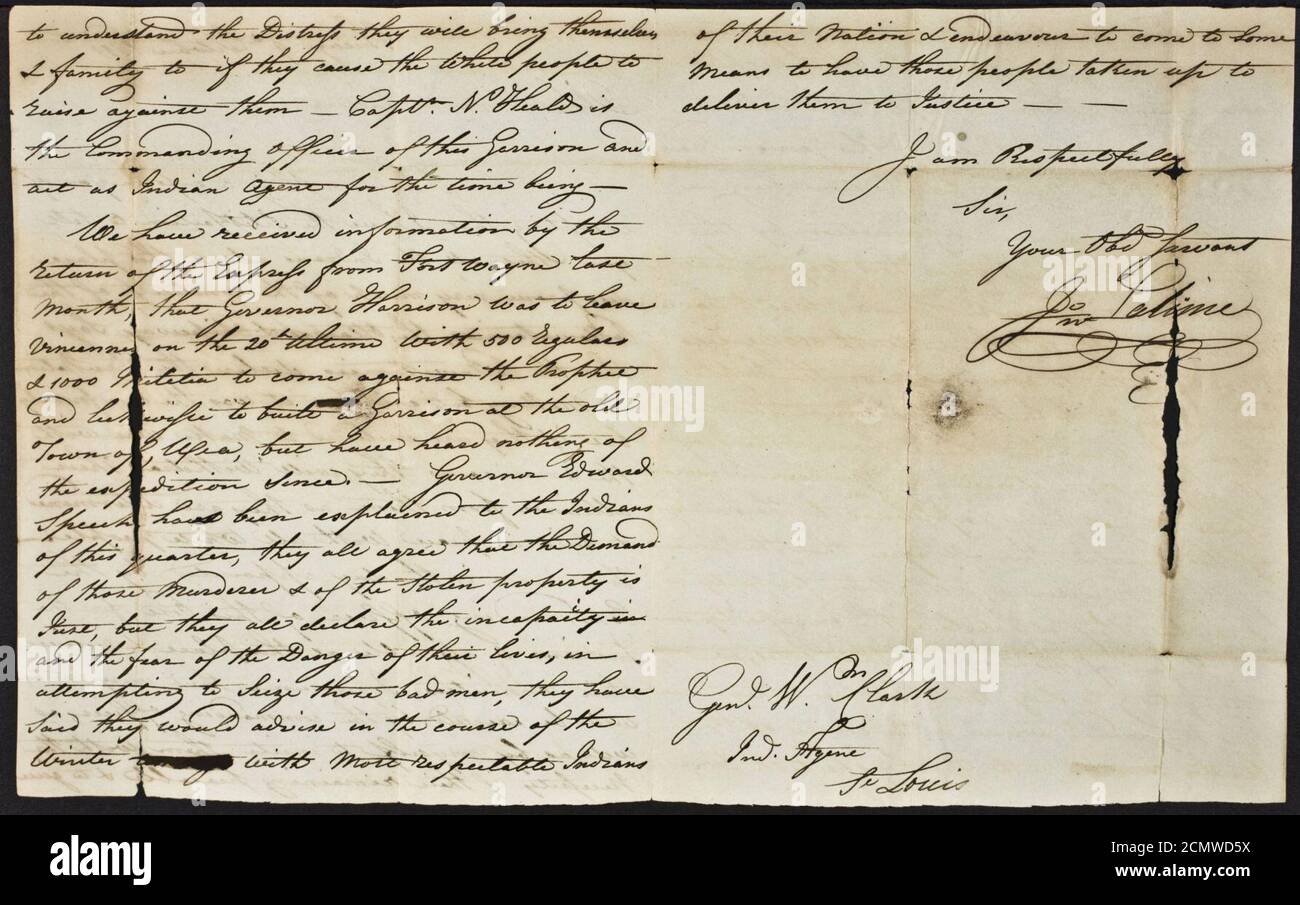 to understand the Distress they will bring themselves
& family to if they cause the White people to
raise against them — Captn. N. Heald is
the Commanding Officer of this Garrison and
act as Indian Agent for the time being —
We have received information by the
return of the Express from Fort Wayne last
Month, that Governor Harrison was to leave
Vincennes on the 20t. ultimo with 500 Regulars
& 1000 Militia to come against the Prophet
and likwisse to built a Garrison at the old
Town of, Uia, but have heard nothing of
the expedition since. — Governor Edward
Speech have been explained to the Indians
of this quarter, they all agree that the Demand
of those Murderer & of the Stolen property is
Just, but they all declare the incapaity in
and the fear of the Danger of their lives, in
attempting to Seize those bad men, they have
Said they would advise in the course of the
Winter with Most respectable Indians
of their Nation & endeavour to come to Some
Means to have those people taken up to
deliver them to Justice — —
I am Respectfully
Sir,
Your Obd. Servant
Jno. Lalime
Genl. Wm. Clark
Ind. Agent
St Louis
alamy
alamy
Image ID: 2CMWD5X
www.alamy.com